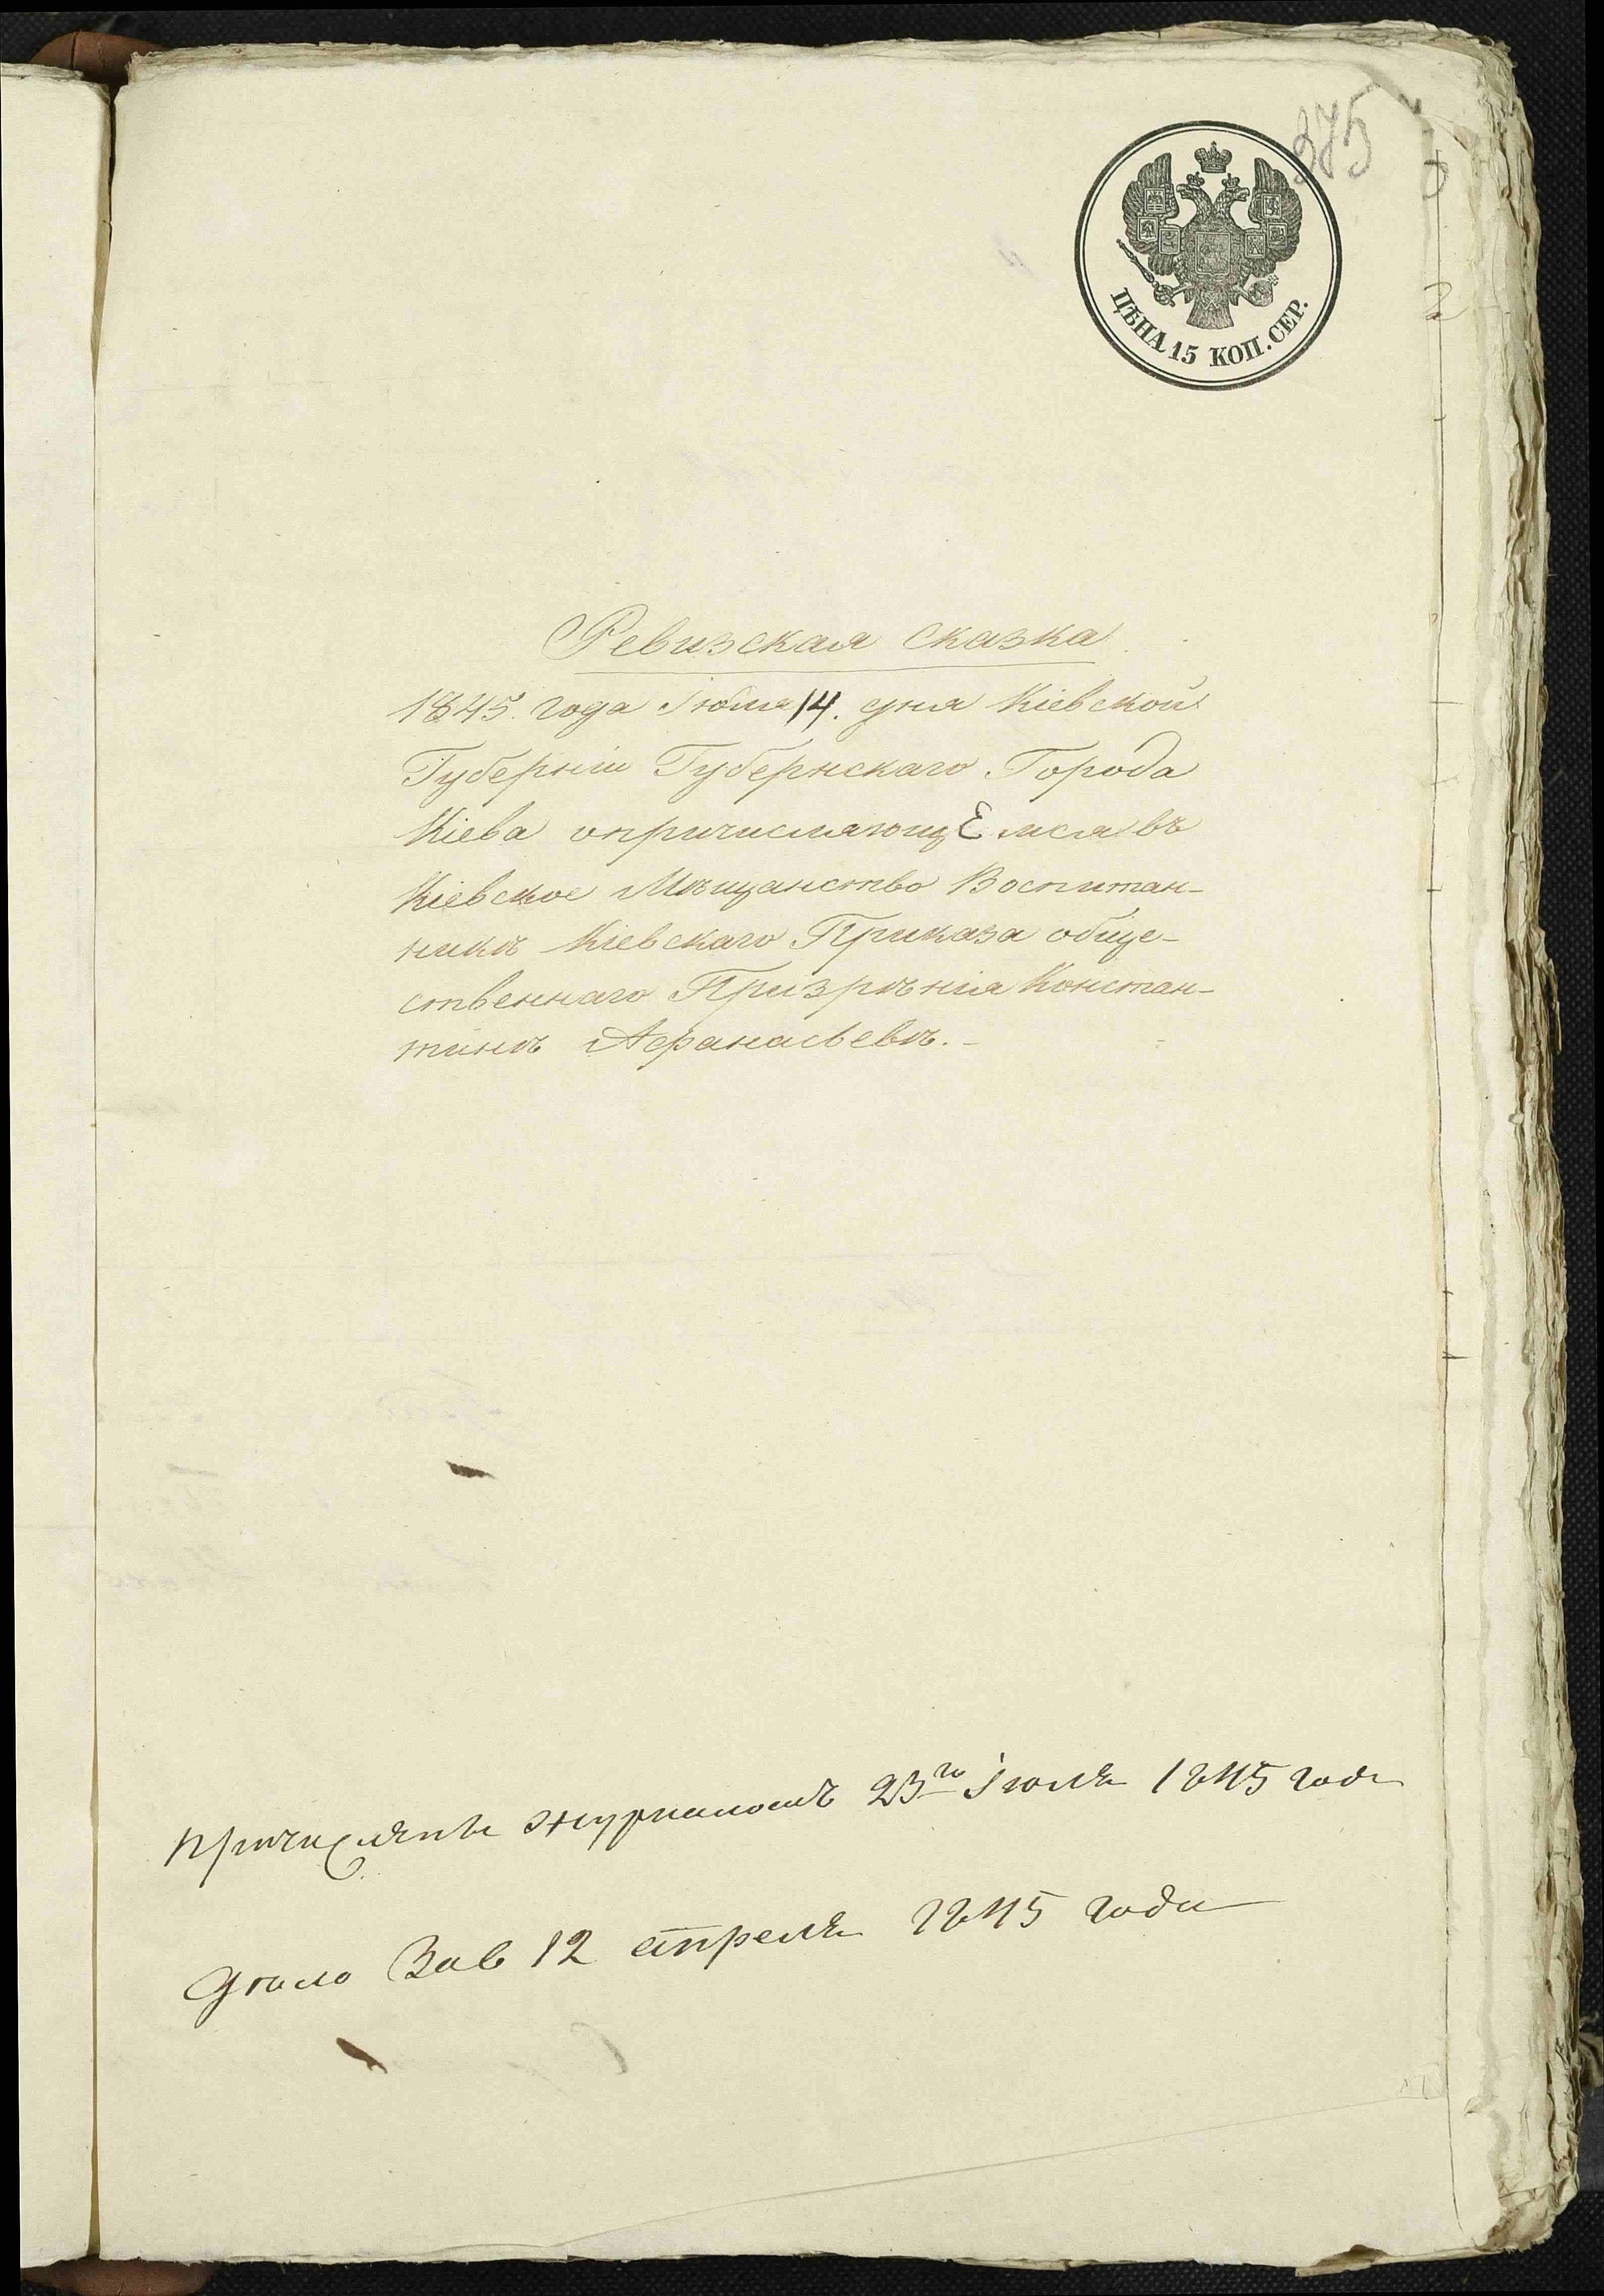 375
ЦѢНА 15 КОП. СЕР.
Ревизская сказка
1845. года Іюля 14. дня Кіевской
Губерніи Губернскаго Города
Кіева опричисляющемся въ
Кіевское Мѣщанство Воспитан-
никѣ Кіевскаго Приказа обще-
ственнаго Призрѣнія Констан-
тинѣ Афанасьевѣ.
Причислятьи журналомъ 23го Іюля 1845 года
дѣло Зав 12 апреля 1845 года